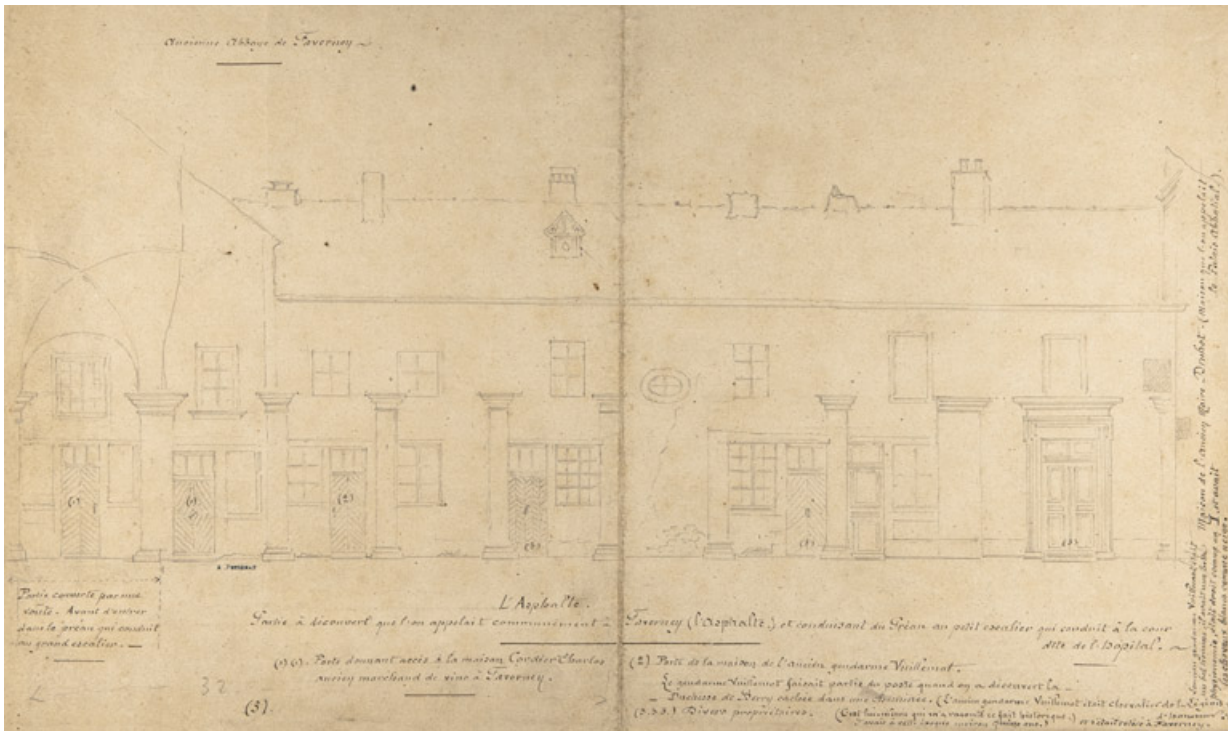 Ancienne Abbaye de Faverney
(1)
(1)
(2)
(3)
(3)
(3)
Partie couverte par une
voûte. Avant d'entrer
dans le préau qui conduit
au grand escalier.
L'Asphalte.
Partie à découvert que l'on appelait communément à Faverney (l'Asphalte) et conduisant du Préau au petit escalier qui conduit à la cour
dite de l'hôpital.
(1)(1). Porte donnant accès à la maison Cordier Charles
ancien marchand de vins à Faverney.
32
(3).
(2) Porte de la maison de l'ancien gendarme Vuillemot.
Le gendarme Vuillemot faisait partie du poste quand on a découvert la
Duchesse de Berry cachée dans une cheminée. (L'ancien gendarme Vuillemot était chevalier de la Légion
d'honneur
(3.3.3.) Divers propriétaires. (C'est lui-même qui m'a raconté ce fait historique.) et s'était retiré à Faverney.
Maison de l'ancien Maire Druhot. (Maison que l'on appelait
le Palais Abbatial).